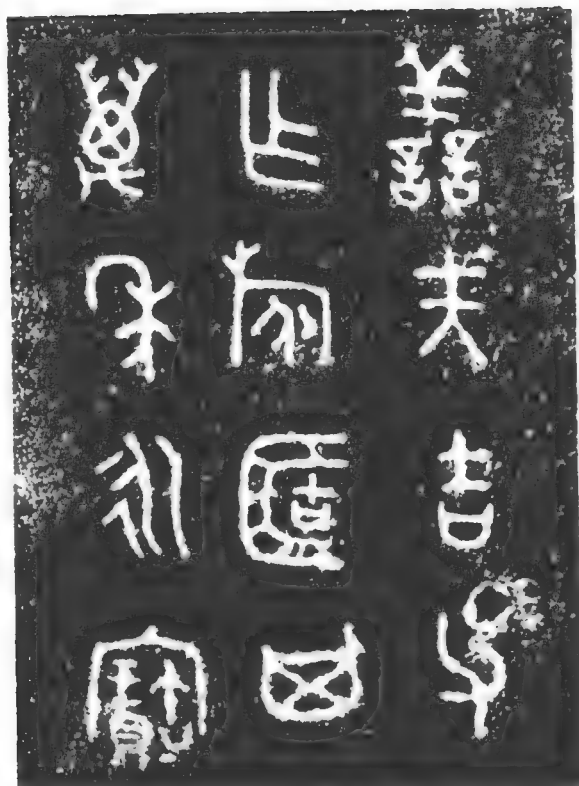 譱夫吉父
乍旅簠其
萬年永寶